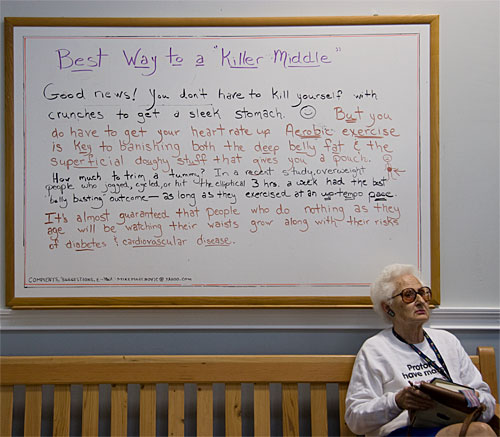 Best Way to a "Killer Middle"
Good news! You don't have to kill yourself with
crunches to get a sleek stomach. But you
do have to get your heart rate up Aerobic exercise
is key to banishing both the deep belly fat & the
superficial doughy stuff that gives you a pouch.
How much to trim a tummy? In a recent study, overweight
people who joged, cycled, or hit the elliptical 3 hrs. a week had the best
belly busting outcome — as long as they exercised at an up-tempo pace.
It's almost guaranteed that people who do nothing as they
age will be watching their waists grow along with their risks
of diabetes & cardiovascular disease.
COMMENTS, SUGGESTIONS, E-MAIL
@YAHOO.COM
have